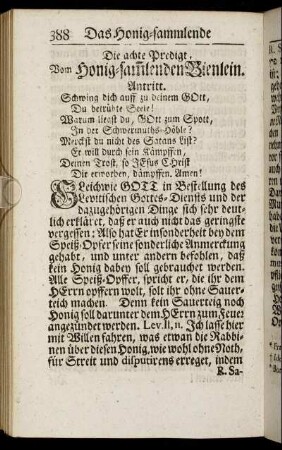 388 Das Honig-sammlende
Die achte Predigt,
Vom Honig-samlenden Bienlein.
Antritt.
Schwing dich auff zu deinem GOtt,
Du betrübte Seele!
Warum liegst du, GOtt zum Spott,
In der Schwermuths-Höhle?
Merckst du nicht des Satans List?
Er will durch sein Kämpffen,
Deinen Trost, so JEsus Christ
Dir erworben, dämpffen, Amen!
GLeichwie GOTT in Bestellung des
Levitischen Gottes-Diensts und der
dazugehörigen Dinge sich sehr deut-
lich erkläret, daß er auch nicht das geringste
vergessen: Also hat Er insonderheit bey dem
Speiß-Opfer seine sonderliche Anmerckung
gehabt, und unter andern befohlen, daß
kein Honig dabey soll gebrauchet werden.
Alle Speiß-Opffer, spricht er, die ihr dem
HErrn opffern wolt, solt ihr ohne Sauer-
teich machen. Denn kein Sauerteig noch
Honig soll darunter dem HErrn zum Feuer
angezündet werden. Lev. II, 11. Ich lasse hier
mit Willen fahren, was etwan die Rabbi-
nen über diesen Honig, wie wohl ohne Noth,
für Streit und disputirens erreget, indem
R. Sa-